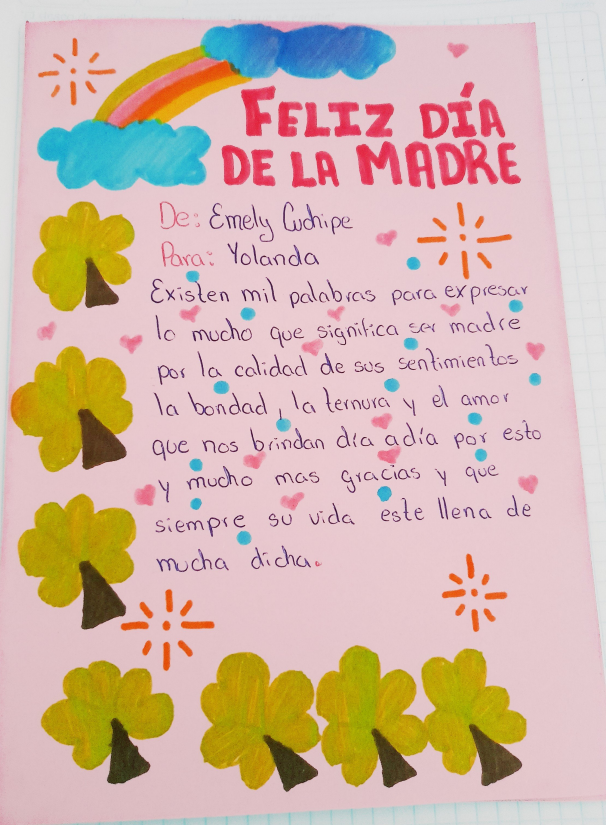 FELIZ DÍA
DE LA MADRE
De: Emely Cuchipe
Para: Yolanda
Existen mil palabras para expresar
lo mucho que significa ser madre
por la calidad de sus sentimientos
la bondad, la ternura y el amor
que nos brindan día adía por esto
y mucho mas gracias y que
siempre su vida este llena de
mucha dicha.